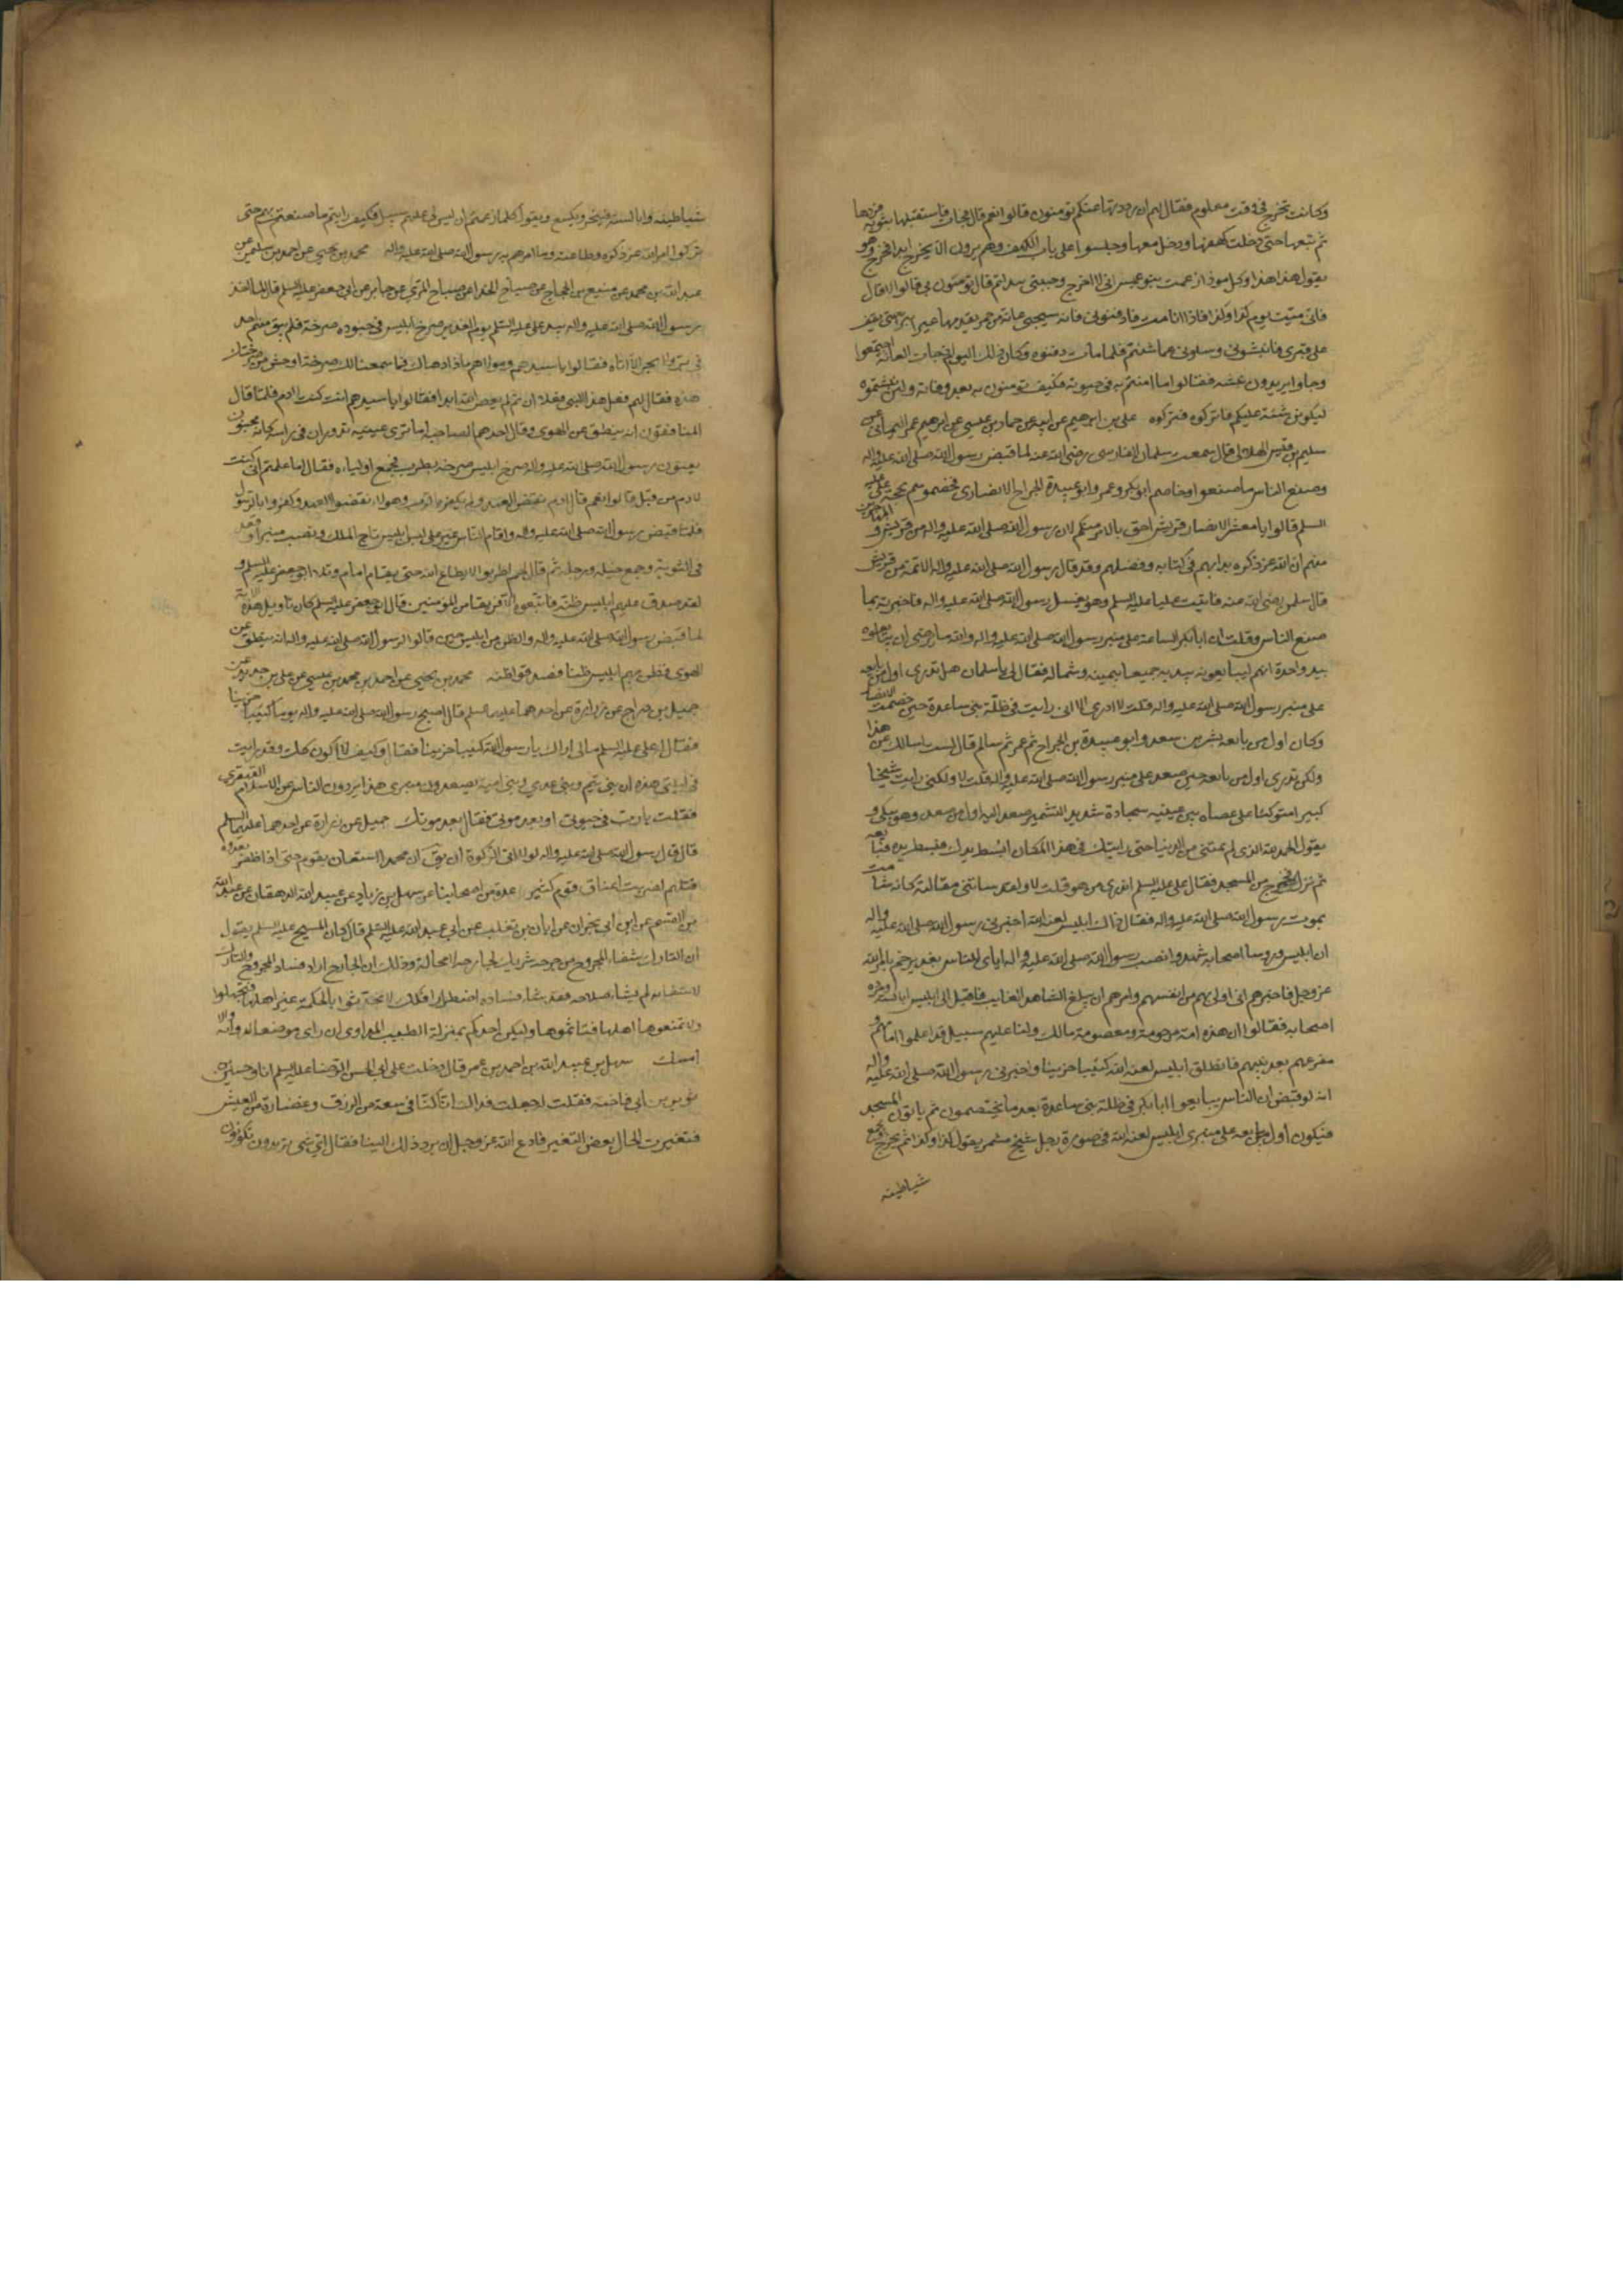 وكانت تخرج في وقت معلوم فقال لهم ان رددتها عنكم تؤمنون قالوا نعم قال فجاءت فاستقبلها بثوبه فردها
ثم تبعها حتى دخلت كهفها ودخل معها وجلسوا على باب الكهف وهم يرون الا يخرج ابدا فخرج وهو
يقول هذا هذا وكل هذا من ذا زعمت بنو عبس اني لا اخرج وجبيني يندا ثم قال تؤمنون بي قالوا لا قال
فاني ميت يوم كذا وكذا فاذا انا مت فادفنوني فانه سيجيء عانة من حمر يقدمها عير ابتر حتى يقف
على قبري فانبشوني وسلوني عما شئتم فلما مات دفنوه وكان ذلك اليوم اذ جات العانة اجتمعوا
وجاوا يريدون نبشه فقالوا ما امنتم به في حيوته فكيف تؤمنون به بعد وفاته ولئن نبشتموه
ليكونن سبة عليكم فاتركوه فتركوه علي بن ابرهيم عن ابيه عن حماد بن عيسى عن ابرهيم بن عمر اليماني عن
سليم بن قيس الهلالي قال سمعت سلمان الفارسي رضي الله عنه لما قبض رسول الله صلى الله عليه واله
وصنع الناس ما صنعوا وخاصم ابو بكر وعمر وابو عبيدة الجراح الانصاري فخصموهم بحجة علي عليه
السلم قالوا يا معشر الانصار قريش احق بالامر منكم لان رسول الله صلى الله عليه واله من قريش و المهاجرين
منهم ان الله عز ذكره بدا بهم في كتابه وفضلهم وقد قال رسول الله صلى الله عليه واله الائمة من قريش
قال سلمن رضي الله عنه فاتيت عليا عليه السلم وهو يغسل رسول الله صلى الله عليه واله فاخبرته بما
صنع الناس وقلت ان ابا بكر الساعة على منبر رسول الله صلى الله عليه واله والله ما رضي ان يبايعوه
بيد واحدة انهم ليبايعونه بيديه جميعا بيمينه وشماله فقال لي يا سلمان هل تدري اول من بايعه
على منبر رسول الله صلى الله عليه واله قلت لا ادري الا اني رايت في ظلة بني ساعدة حين خصمت الانصار
وكان اول من بايعه بشير بن سعد وابو عبيدة بن الجراح ثم عمر ثم سالم قال لست اسالك عن هذا
ولكن تدري اول من بايعه حين صعد على منبر رسول الله صلى الله عليه واله قلت لا ولكني رايت شيخا
كبيرا متوكئا على عصاه بين عينيه سجادة شديد التشمير صعد اليه اول من صعد وهو يبكي و
يقول الحمد لله الذي لم يمتني من الدنيا حتى رايتك في هذا المكان ابسط يدك فبسط يده فبايعه
ثم نزل فخرج من المسجد فقال علي عليه السلم هل تدري من هو قلت لا ولقد ساتني مقالته كانه شامت
بموت رسول الله صلى الله عليه واله فقال ذاك ابليس لعنه الله اخبرني رسول الله صلى الله عليه واله
ان ابليس وروسا اصحابه شهدوا نصب رسول الله صلى الله عليه واله اياي للناس بغدير خم بامر الله
عز وجل فاخبرهم اني اولى بهم من انفسهم وامرهم ان يبلغ الشاهد الغايب فاقبل الى ابليس ابالسته ومردة
اصحابه فقالوا ان هذه امة مرحومة ومعصومة ومالك ولنا عليهم سبيل قد اعلموا امامهم و
مفزعهم بعد نبيهم فانطلق ابليس لعنه الله كئيبا حزينا واخبرني رسول الله صلى الله عليه واله
انه لو قبض ان الناس يبايعوا ابا بكر في ظلة بني ساعدة بعد ما يختصمون ثم ياتون المسجد
فيكون اول من يبايعه على منبري ابليس لعنه الله في صورة رجل شيخ مشمر يقول كذا وكذا ثم يخرج فيجمع
شياطينه
شياطينه وابالسته فينخر ويكسع ويقول كلا زعمتم ان ليس لي عليهم سبيل فكيف رايتم ما صنعتم بهم حتى
تركوا امر الله عز ذكره وطاعته وما امرهم به رسول الله صلى الله عليه واله محمد بن يحيى عن احمد بن سليمن عن
عبد الله بن محمد عن منيع بن الحجاج عن صباح الحذا عن صباح المزني عن جابر عن ابي جعفر عليه السلم قال لما اخذ
رسول الله صلى الله عليه واله بيد علي عليه السلم يوم الغدير صرخ ابليس في جنوده صرخة فلم يبق منهم احد
في بر ولا بحر الا اتاه فقالوا يا سيدهم ومولاهم ماذا دهاك فما سمعنا لك صرخة اوحش من صرختك
هذه فقال لهم فعل هذا النبي فعلا ان تم لم يعص الله ابدا فقالوا يا سيدهم انت كنت لادم فلما قال
المنافقون انه ينطق عن الهوى وقال احدهما لصاحبه اما ترى عينيه تدوران في راسه كانه مجنون
يعنون رسول الله صلى الله عليه واله صرخ ابليس صرخة بطرب فجمع اولياءه فقال اما علمتم اني كنت
لادم من قبل قالوا نعم قال ادم نقض العهد ولم يكفر بالرب وهولاء نقضوا العهد وكفروا بالرسول
فلما قبض رسول الله صلى الله عليه واله واقام الناس غير علي لبس ابليس تاج الملك ونصب منبرا وقعد
في الثوية وجمع خيله ورجله ثم قال لهم اطربوا لا يطاع الله حتى يقام امام وتلا ابو جعفر عليه السلم و
لقد صدق عليهم ابليس ظنه فاتبعوه الا فريقا من المؤمنين قال ابو جعفر عليه السلم كان تاويل هذه الاية
لما قبض رسول الله صلى الله عليه واله والظن من ابليس حين قالوا لرسول الله صلى الله عليه واله انه ينطق عن
الهوى فظن بهم ابليس ظنا فصدقوا ظنه محمد بن يحيى عن احمد بن محمد بن عيسى عن علي بن حديد عن
جميل بن دراج عن زرارة عن احدهما عليهما السلم قال اصبح رسول الله صلى الله عليه واله يوما كئيبا حزينا
فقال له علي عليه السلم مالي اراك يا رسول الله كئيبا حزينا فقال وكيف لا اكون كذلك وقد رايت
في ليلتي هذه ان بني تيم وبني عدي وبني امية يصعدون منبري هذا يردون الناس عن الاسلام القهقرى
فقلت يا رب في حيوتي او بعد موتي فقال بعد موتك جميل عن زرارة عن احدهما عليهما السلم
قال قال رسول الله صلى الله عليه واله لولا اني اكره ان يقال ان محمدا استعان بقوم حتى اذا ظفر بعدوه
قتلهم لضربت اعناق قوم كثير عدة من اصحابنا عن سهل بن زياد عن عبيد الله الدهقان عن عبد الله
بن القسم عن ابن ابي نجران عن ابان بن تغلب عن ابي عبد الله عليه السلم قال كان المسيح عليه السلم يقول
ان التارك شفاء المجروح من جرحه شريك لجارحه لا محالة وذلك ان الجارح اراد فساد المجروح والتارك
لاشفائه لم يشا صلاحه فقد شاء فساده اضطرارا فكذلك لا تحدثوا بالحكمة غير اهلها فتجهلوا
ولا تمنعوها اهلها فتاثموا وليكن احدكم بمنزلة الطبيب المداوي ان راى موضعا لدوائه والا
امسك سهل بن عبيد الله بن احمد بن عمر قال دخلت على ابي الحسن الرضا عليه السلم انا وحسين
ثوير بن ابي فاخته فقلت له جعلت فداك انا كنا في سعة من الرزق وغضارة من العيش
فتغيرت الحال بعض التغير فادع الله عز وجل ان يرد ذلك الينا فقال اي شيء تريدون تكونون